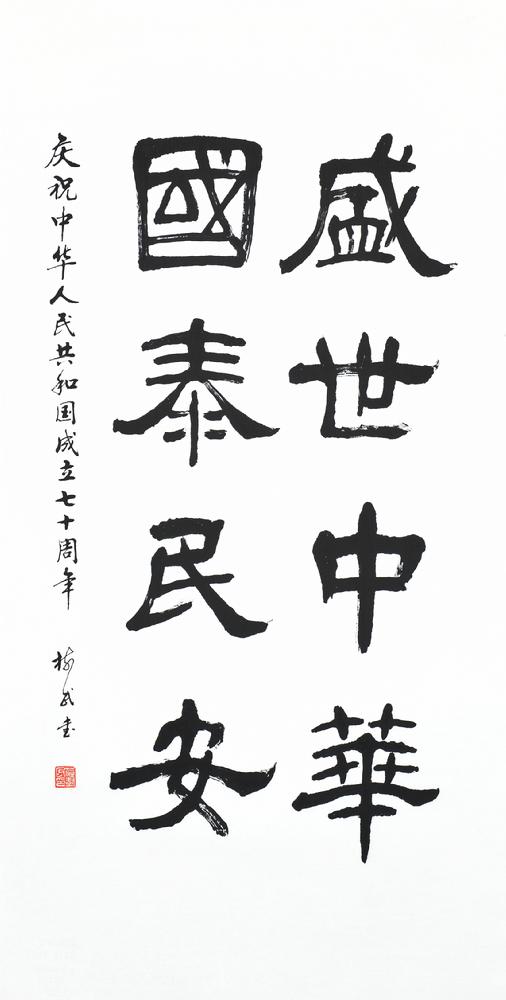 盛世中華
國泰民安
庆祝中华人民共和国成立七十周年
武书